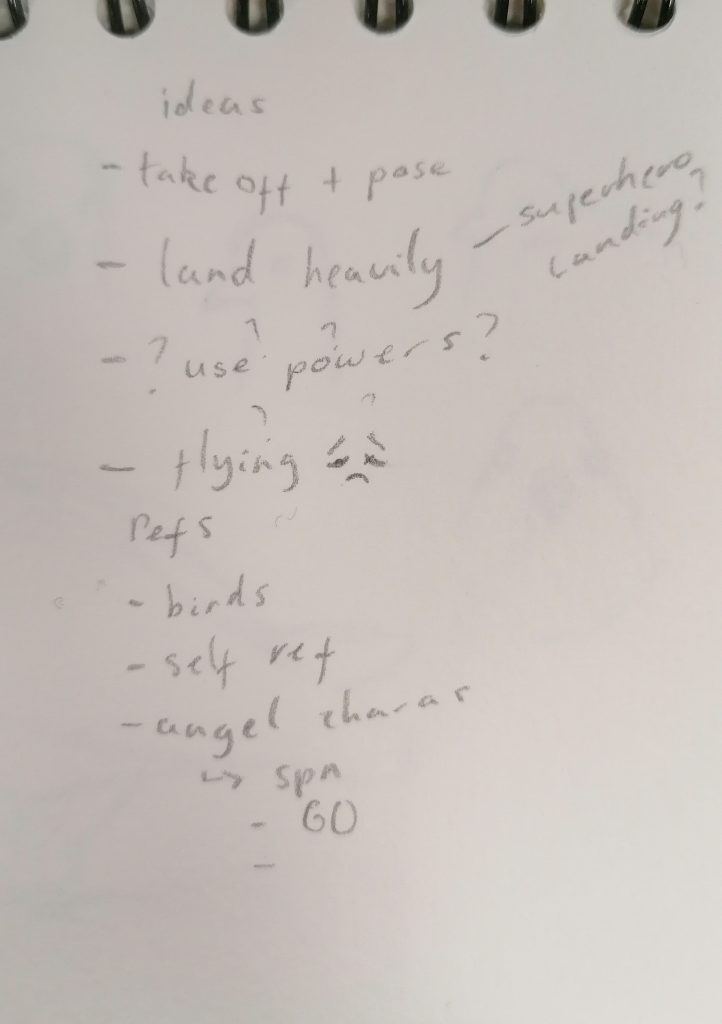 ideas
- take off + pose
- land heavily - superhero landing?
- ? use? powers? ?
- flying ? ?
refs
- birds
- self ref
- angel charas
↳ spn
- GO
-